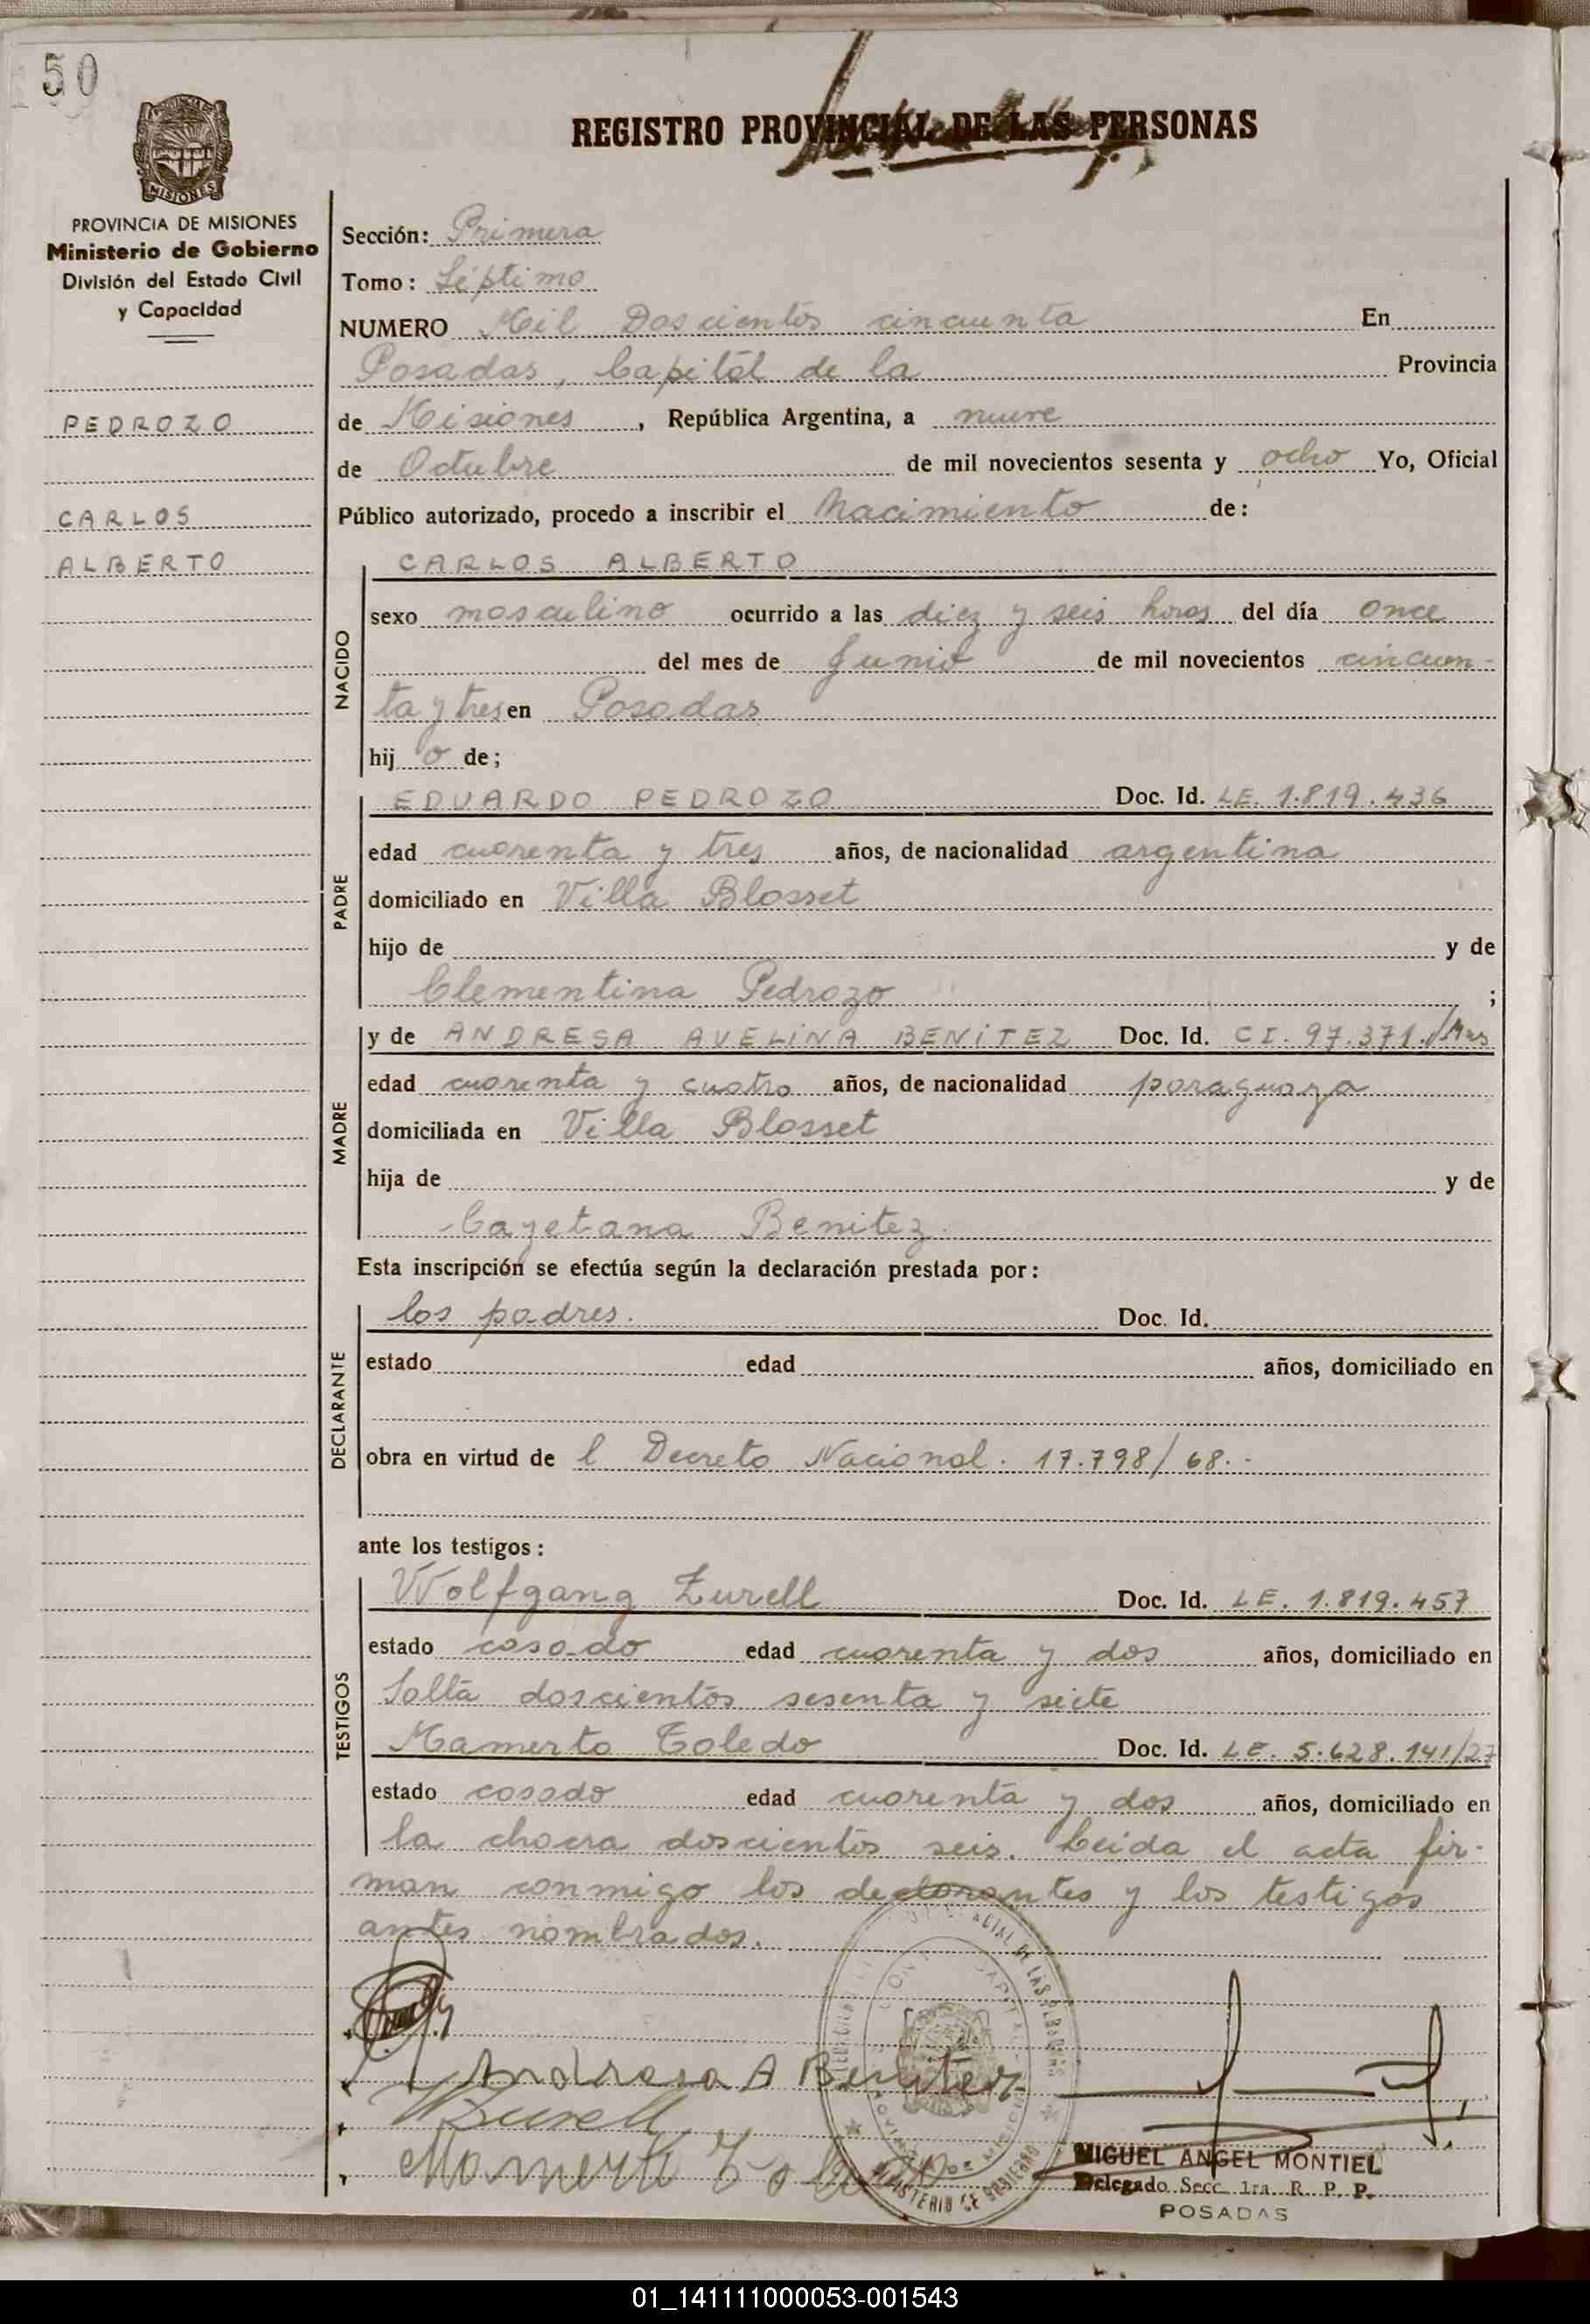 50
REGISTRO PROVINCIAL DE LAS PERSONAS
PROVINCIA DE MISIONES
Ministerio de Gobierno
División del Estado Civil
y Capacidad
PEDROZO
CARLOS
ALBERTO
Sección: Primera
Tomo: Séptimo
NUMERO Mil Doscientos cincuenta En
Posadas, Capital de la Provincia
de Misiones, República Argentina, a nueve
de Octubre de mil novecientos sesenta y ocho Yo, Oficial
Público autorizado, procedo a inscribir el Nacimiento de:
NACIDO
CARLOS ALBERTO
sexo masculino ocurrido a las diez y seis horas del día once
del mes de Junio de mil novecientos cincuen-
ta y tres en Posadas
hijo de;
PADRE
EDUARDO PEDROZO Doc. Id. LE. 1.819.436
edad cuarenta y tres años, de nacionalidad argentina
domiciliado en Villa Blosset
hijo de y de
Clementina Pedrozo ;
MADRE
y de ANDRESA AVELINA BENITEZ Doc. Id. CI. 97.371./Mnes
edad cuarenta y cuatro años, de nacionalidad paraguaya
domiciliada en Villa Blosset
hija de y de
Cayetana Benitez.
Esta inscripción se efectúa según la declaración prestada por:
DECLARANTE
los padres. Doc. Id.
estado edad años, domiciliado en
obra en virtud de l Decreto Nacional. 17.798/68.-
ante los testigos:
TESTIGOS
Wolfgang Zurell Doc. Id. LE. 1.819.457
estado casado edad cuarenta y dos años, domiciliado en
Salta doscientos sesenta y siete
Mamerto Toledo Doc. Id. LE. 5.628.141/27
estado casado edad cuarenta y dos años, domiciliado en
la chacra doscientos seis. Leida el acta fir-
man conmigo los declarantes y los testigos
antes nombrados.
Andresa A Benitez
WZurell
Mamerto Toledo
DE LAS PERSONAS
MINISTERIO DE GOBIERNO
MIGUEL ANGEL MONTIEL
Delegado Secc. 1ra. R. P. P.
POSADAS
01_141111000053-001543